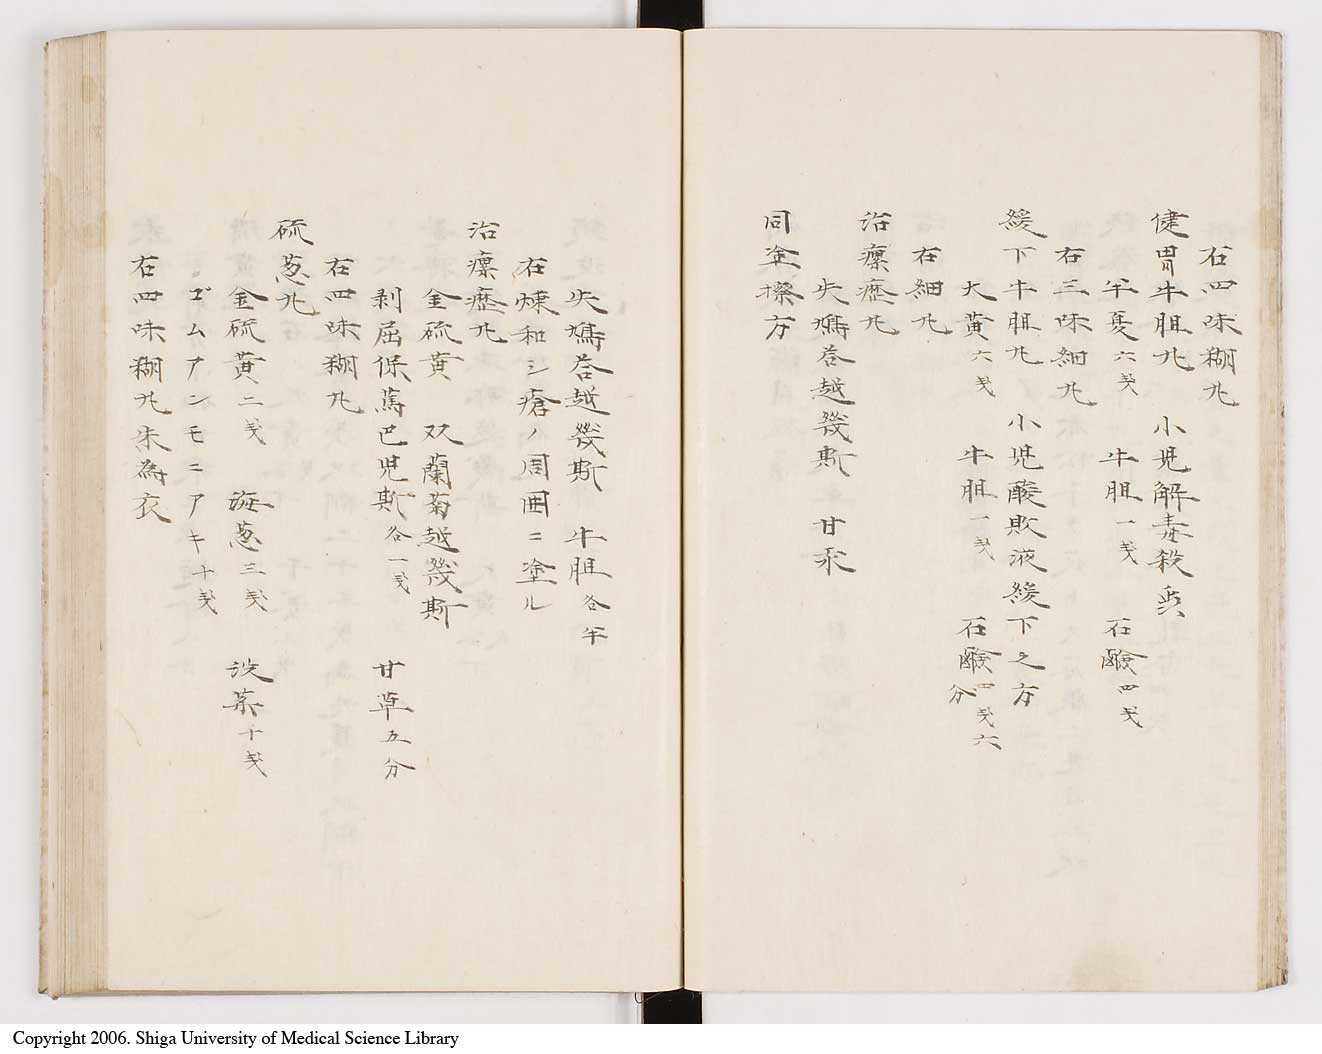 右四味糊丸
健胃牛胆丸　小児解毒殺虫
芉夏六戔　牛胆一戔　石鹸四戔
右三味細丸
緩下牛胆丸　小児酸敗液緩下之方
大黄六戔　牛胆一戔　石鹸四戔六分
右細丸
治瘰癧丸
失鳩荅越幾斯　甘汞
同塗擦方
失鳩荅越幾斯　牛胆各半
右煉和シ瘡ノ周囲ニ塗ル
治瘰癧丸
金硫黄　双蘭菊越幾斯
剥屈保蔦巴児斯各一戔　甘草五分
右四味糊丸
硫葱丸
金硫黄二戔　海葱三戔　没薬十戔
ゴムアンモニアキ十戔
右四味糊丸朱為衣
Copyright 2006. Shiga University of Medical Science Library